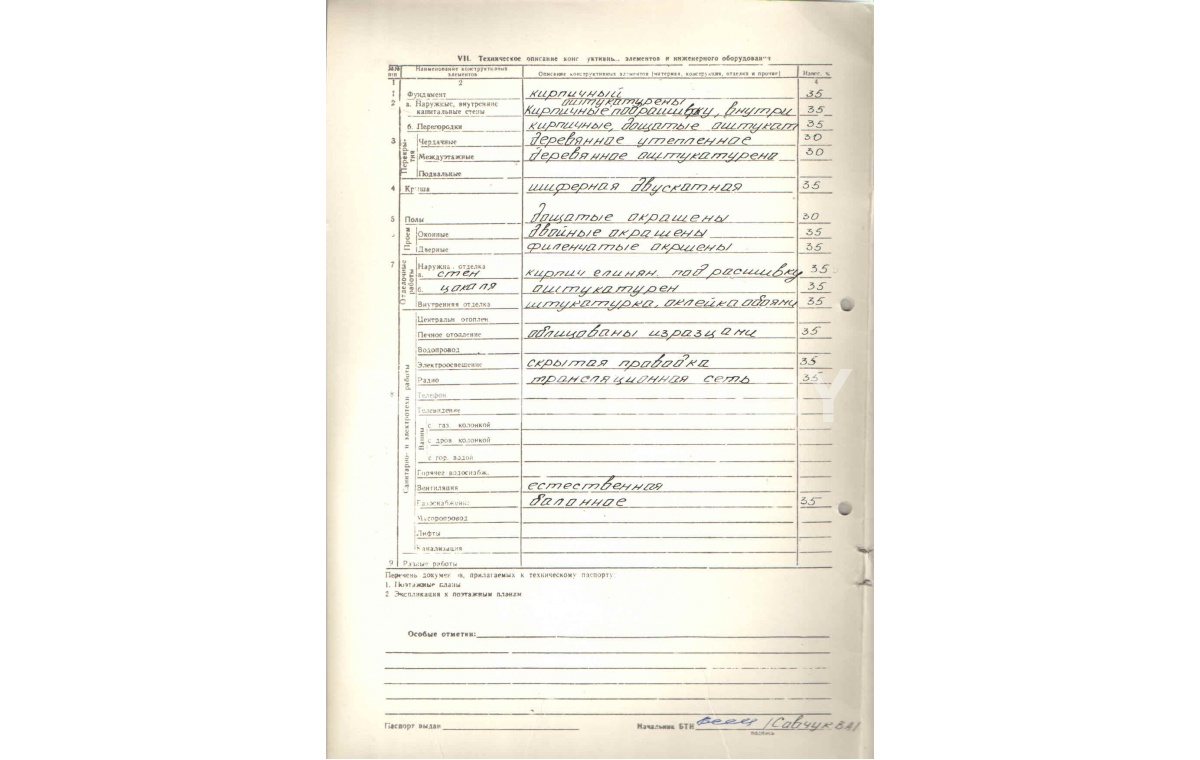 VII. Техническое описание конг уктивнь.. элементов и инженерного оборудования
№№ п/п Наименование конструктивных элементов Описание конструктивных элементов (материал, конструкция, отделка и прочие) Износ, %
1 2 4
1 Фундамент кирпичный 35
2 а. Наружные, внутренние капитальные стены оштукатурены кирпичные подрашивку, внутри 35
б. Перегородки кирпичные, дощатые оштукат 35
3 Перекрытия Чердачные деревянное утепенное 30
Междуэтажные деревянное оштукатурено 30
Подвальные
4 Крыша шиферная двускатная 35
5 Полы дощатые окрашены 30
Проем Оконные двойные окрашены 35
Дверные филенчатые окршены 35
7 Отделочные работы Наружна. отделка
а. стен кирпич под расшивку 35
б. цоколя оштукатурен 35
Внутренняя отделка штукатурка, оклейка обоями 35
Санитарно- и электротехн работы Централын отоплен
Печное отопление облицованы изразцами 35
Водопровод
Электроосвещение скрытая проводка 35
Радио трансляционная сеть 35
Телефон
Телевидение
Ванны с газ. колонкой
с дров. колонкой
с гор. водой
Горячее водоснабж.
Вентиляция естественная
Газоснабжение балонное 35
Мусоропровод
Лифты
Канализация
9 Разные работы
Перечень докумен ов, прилагаемых к техническому паспорту
1. Поэтажные планы
2 Экспликация к поэтажным планам
Особые отметки:
Паспорт выдан Начальник БТИ /Савчук В.А/
подпись